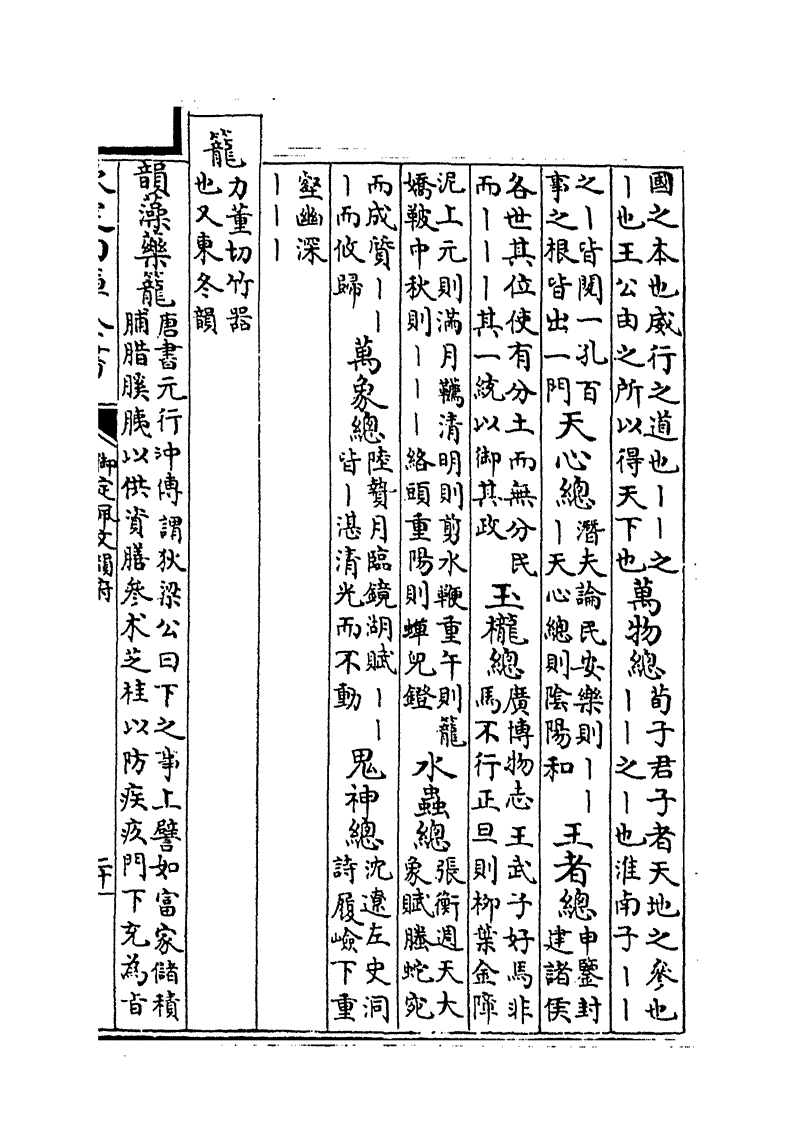 國之本也威行之道也丨丨之
丨也王公由之所以得天下也
萬物總
荀子君子者天地之參也
丨丨之丨也淮南子丨丨
之丨皆閱一孔百
事之根皆出一門
天心總
潛夫論民安樂則丨丨
丨天心總則陰陽和
王者總
申鑒封
建諸侯
各世其位使有分土而無分民
而丨丨丨其一統以御其政
玉櫳總
廣博物志王武子好馬非
馬不行正旦則柳葉金障
泥上元則滿月韉清明則剪水鞭重午則籠
嬌鞁中秋則丨丨丨絡頭重陽則蟬兒鐙
水蟲總
張衡週天大
象賦騰蛇宛
而成質丨丨
丨而攸歸
萬象總
陸贄月臨鏡湖賦丨丨
皆丨湛清光而不動
鬼神總
沈遼左史洞
詩履嶮下重
壑幽深
丨丨丨
籠
力董切竹器
也又東冬韻
韻藻藥籠
唐書元行沖傳謂狄梁公曰下之事上譬如富家儲積
脯腊膎胰以供資膳參朮芝桂以防疾疢門下充為旨
御定佩文韻府